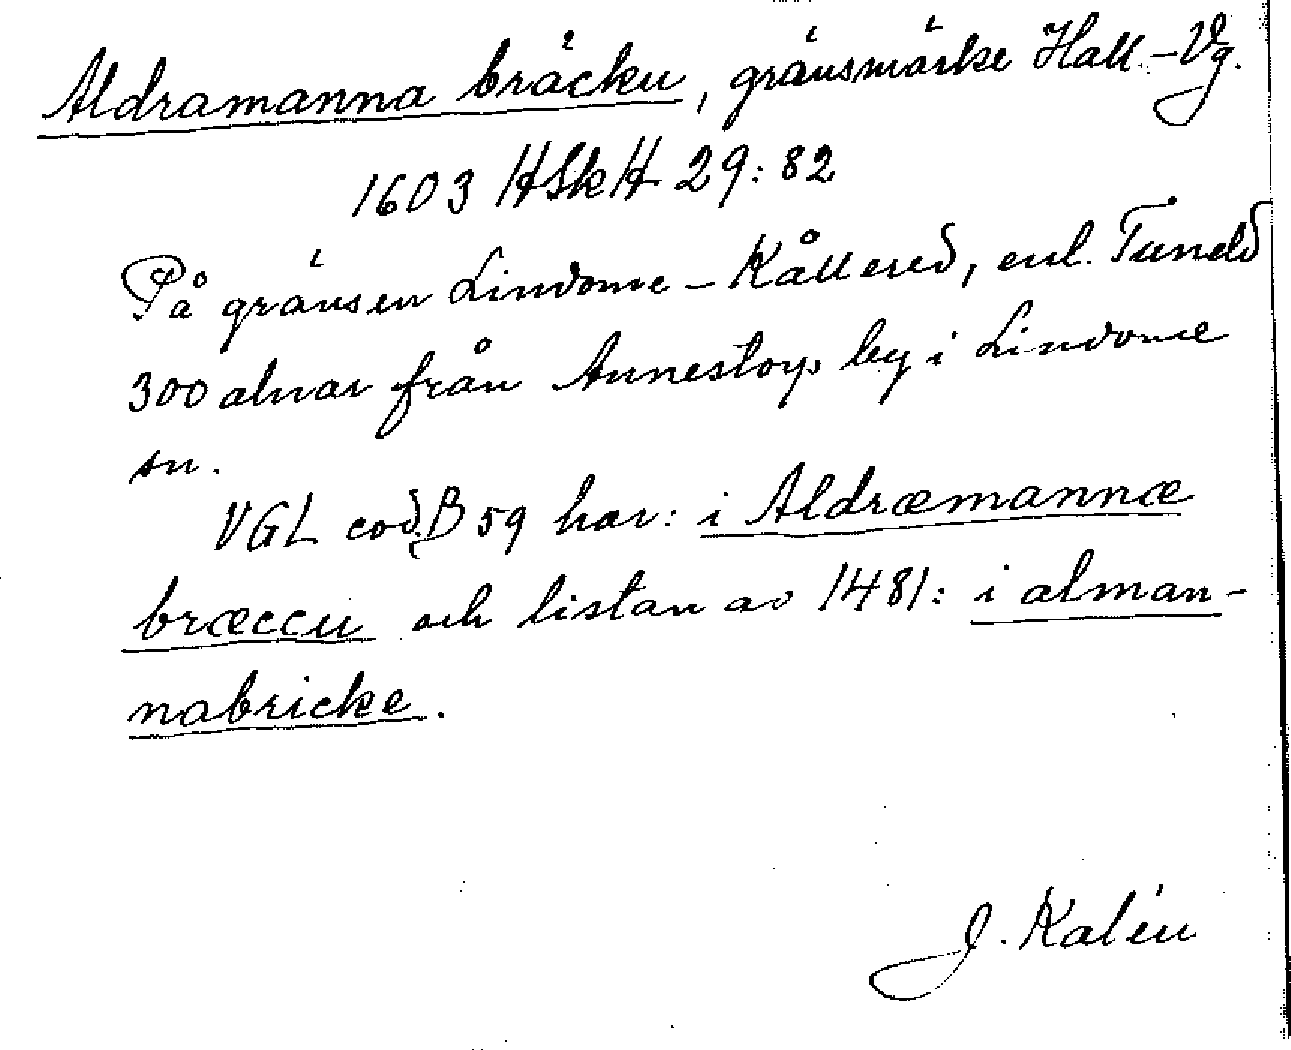 Aldramanna bräcku, gränsmärke Hall.-Vg.
1603 HSkH 29:82
På gränsen Lindome-Kållered, enl. Tuneld
300 alnar från Annestorp by i Lindome
sn.
VGL cod. B 59 har: i Aldræmannæ
bræccu och listan av 1481: i alman-
nabricke.
J. Kalén